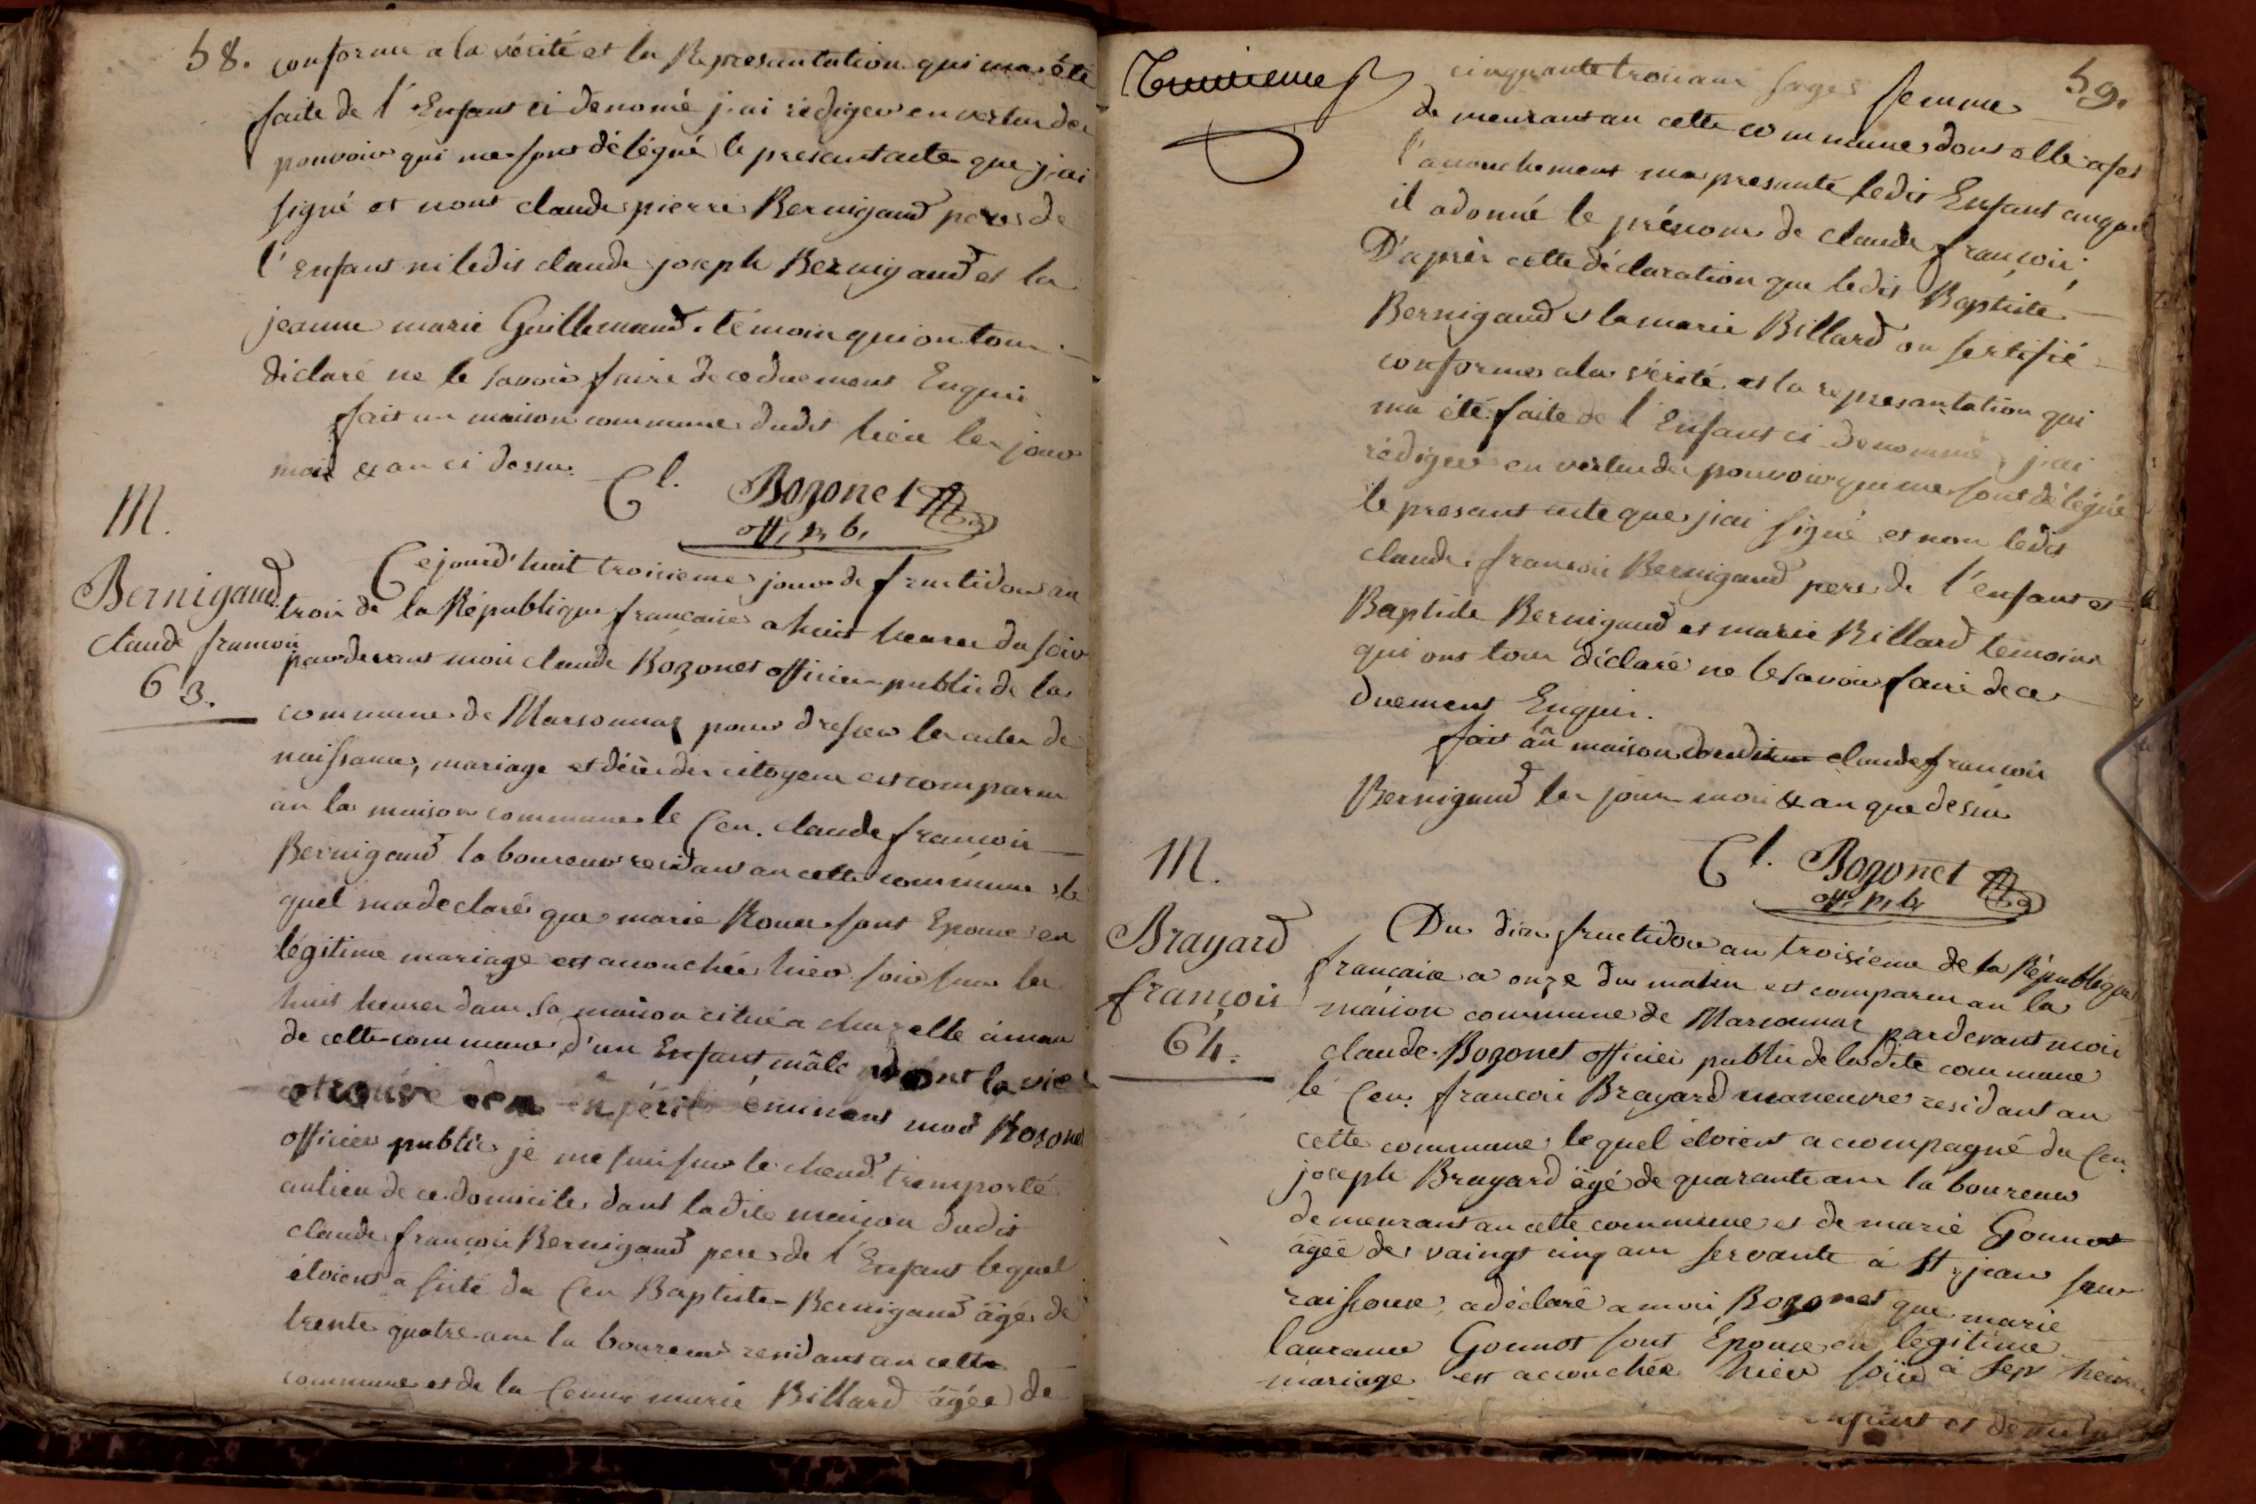 58.
conforme a la vérité et la Representation qui ma été
faite de l'Enfant ci denomé j'ai rédiger en vertu des
pouvoirs qui me sont délégué le presant acte que j'ai
signé et nont claude pierre Bernigaud pere de
l'enfant ni ledit claude joseph Bernigaud et la
jeanne marie Guillemaud témoin qui on tous
déclaré ne le savoir faire de ce duement Enquis
fait en maison commune dudit lieu les jour
mois & an ci dessus.
Cl. Bozonet
off. p. b.
M.
Bernigaud
claude francois
63.
Cejourd'huit troisieme jour de fructidor an
trois de la République francaise a huit heures du soir
pardevant moi claude Bozonet officier public de la
commune de Marsonnaz pour dresser les actes de
naissance, mariage et décès des citoyens est comparu
an la maison commune le Cen. claude francois
Bernigaud laboureur residant an cette commune le
quel ma declaré que marie Roux sont Epouse en
légitime mariage est acouchée hier soir sur les
huit heures dans sa maison cituéa
de cette commune d'un Enfant mâle dont la vie
en péril éminent moi Bozonet
officier public je me suis sur le chand transporté
au lieu de ce domicile dans ladite maison dudit
claude francois Bernigaud pere de l'Enfant lequel
étoient asisté du Cen Baptiste Bernigaud âgé de
trente quatre ans laboureur residant an cette
commune et de la Cenne marie Billard âgée de
59.
cinquante trois ans sages femme
demeurant an cette commune dont elle a fet
l'acouchement ma presanté ledit Enfant auquel
il a donné le prénom de claude francois,
D'après cette déclaration que ledit Baptiste
Bernigaud et la marie Billard on sertifié
conforme a la vérité et la représantation qui
ma été faite de l'Enfant ci denommé, j'ai
rédiger en vertu des pouvoirs qui me sont délégué
le presant acte que j'ai signé et non ledit
claude francois Bernigaud pere de l'enfant et
Baptiste Bernigaud et marie Billard témoins
qui ont tous déclaré ne le savoir faire de ce
duement Enquis.
fait an maison dudit claude francois
Bernigaud les jour mois & an que dessus
Cl. Bozonet
off. p. b.
M.
Brayard
françois
64.
Du dix fructidor an troisieme de la République
francaise a onze du matin est comparu an la
maison commune de Marsonnaz pardevant moi
claude Bozonet officier public de ladite commune
le Cen. francois Brayard maneuvre residant an
cette commune lequel étoient acompagné du Cen.
joseph Brayard âgé de quarante ans laboureur
demeurant an cette commune et de marie Gonnot
âgée de vaingt cinq ans servante à St jean sur
raissouse, a déclaré a moi Bozonet que marie
laurance Gonnot sont Epouse en légitime
mariage est acouchée hier soir à sept heures